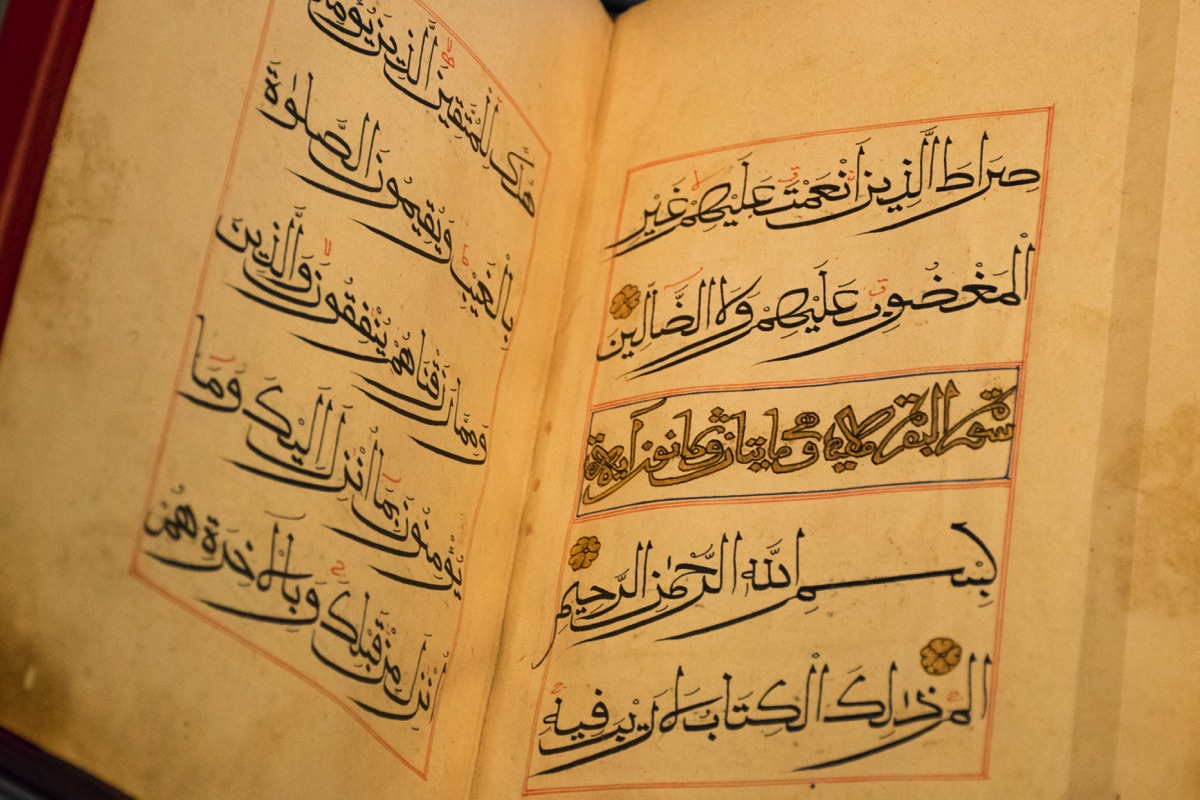 صِرَاطَ الَّذِينَ انْعَمْتَ عَلَيْهِمْ غَيْرِ
الْمَغْضُوبِ عَلَيْهِمْ وَلَا الضَّالِّينَ
سورة البقرة مكية وهي مايتان وثمانون اية
بِسْمِ اللَّهِ الرَّحْمٰنِ الرَّحِيمِ
الم ذٰلِكَ الْكِتَابُ لَا رَيْبَ فِيهِ
هُدًى لِلْمُتَّقِينَ الَّذِينَ يُؤْمِنُونَ
بِالْغَيْبِ وَيُقِيمُونَ الصَّلٰوةَ
وَمِمَّا رَزَقْنَاهُمْ يُنْفِقُونَ وَالَّذِينَ
يُؤْمِنُونَ بِمَا اُنْزِلَ اِلَيْكَ وَمَا
اُنْزِلَ مِنْ قَبْلِكَ وَبِالْاٰخِرَةِ هُمْ